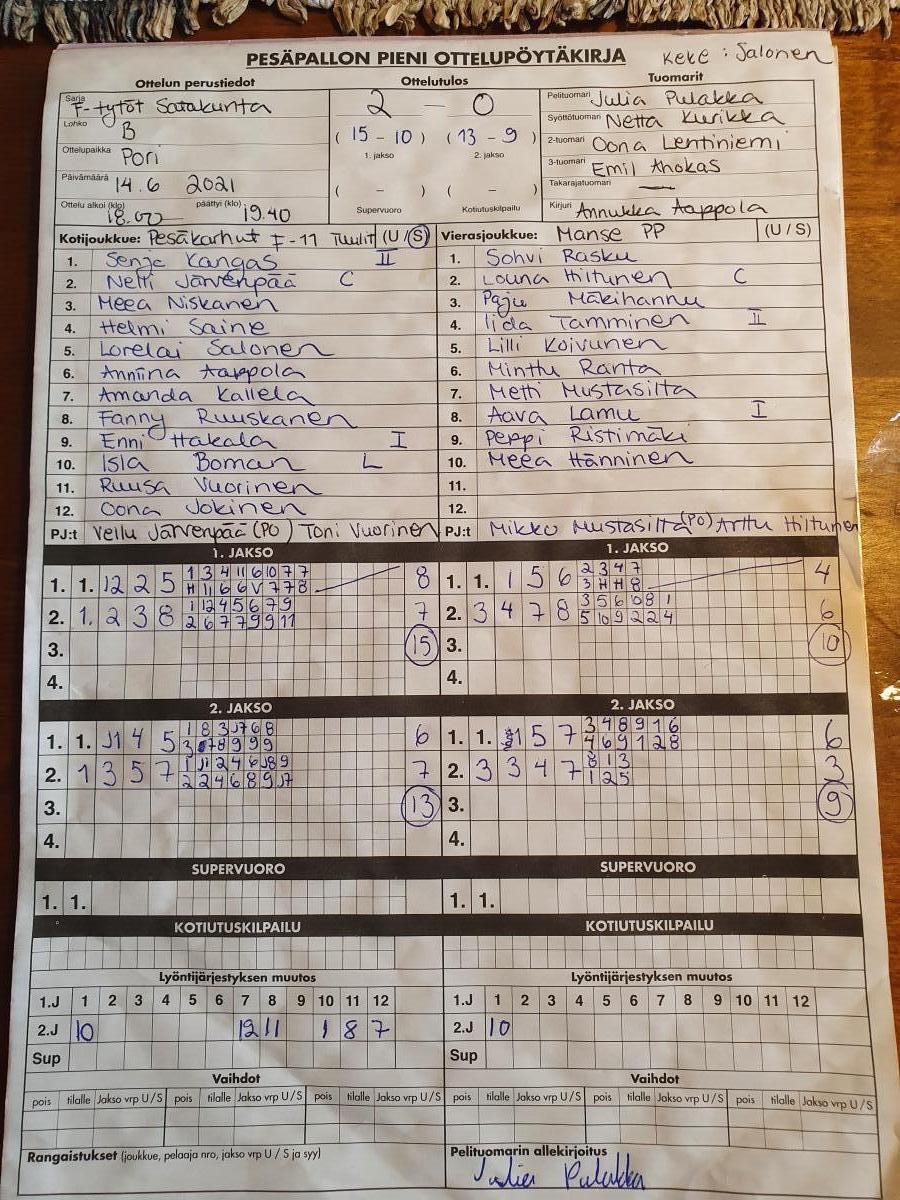 PESÄPALLON PIENI OTTELUPÖYTÄKIRJA
Keke : Jalonen
Ottelun perustiedot Ottelutulos Tuomarit
Sarja F-tytöt Satakunta
Lohko B
Ottelupaikka Pori
Päivämäärä 14.6 2021
Ottelu alkoi (klo) 18.00 päättyi (klo) 19.40
2 – 0
(15 – 10) (13 – 9)
1. jakso 2. jakso
( – ) ( – )
Supervuoro Kotiutuskilpailu
Pelituomari Julia Pulakka
Syöttötuomari Netta Kurikka
2-tuomari Oona Lentiniemi
3-tuomari Emil Ahokas
Takarajatuomari —
Kirjuri Annukka Aappola
Kotijoukkue: Pesäkarhut F-11 Tuulit (U / S)
1. Senja Kangas II
2. Netti Järvenpää C
3. Meea Niskanen
4. Helmi Saine
5. Lorelai Salonen
6. Anniina Aappola
7. Amanda Kallela
8. Fanny Ruuskanen
9. Enni Hakala I
10. Isla Boman L
11. Ruusa Vuorinen
12. Oona Jokinen
PJ:t Veilu Järvenpää (PO) Toni Vuorinen
Vierasjoukkue: Manse PP (U / S)
1. Sohvi Rasku
2. Louna Hiltunen C
3. Paju Mäkihannu
4. Iida Tamminen II
5. Lilli Koivunen
6. Minttu Ranta
7. Metti Mustasilta
8. Aava Lamu I
9. Peppi Ristimäki
10. Meea Hänninen
11.
12.
PJ:t Mikko Mustasilta (PO) Arttu Hiltunen
1. JAKSO
1. 1. 12 2 5 1 3 4 11 6 10 7 7 8
H 11 6 6 V 7 7 8
2. 1. 2 3 8 1 12 4 5 6 7 9 7
2 6 7 7 9 9 11
3. 15
4.
1. JAKSO
1. 1. 1 5 6 2 3 4 7 4
3 H H 8
2. 3 4 7 8 3 5 6 10 8 1 6
5 10 9 2 2 4
3. 10
4.
2. JAKSO
1. 1. J1 4 5 1 8 3 J7 6 8 6
3 7 8 9 9 9
2. 1 3 5 7 1 J1 2 4 6 J8 9 7
2 2 4 6 8 9 J7
3. 13
4.
2. JAKSO
1. 1. 1 5 7 3 4 8 9 1 6 6
4 6 9 1 2 8
2. 3 3 4 7 8 1 3 3
1 2 5
3. 9
4.
SUPERVUORO SUPERVUORO
1. 1. 1. 1.
KOTIUTUSKILPAILU KOTIUTUSKILPAILU
Lyöntijärjestyksen muutos Lyöntijärjestyksen muutos
1.J 1 2 3 4 5 6 7 8 9 10 11 12 1.J 1 2 3 4 5 6 7 8 9 10 11 12
2.J 10 12 11 1 8 7 2.J 10
Sup Sup
Vaihdot Vaihdot
pois tilalle Jakso vrp U / S pois tilalle Jakso vrp U / S pois tilalle Jakso vrp U / S pois tilalle Jakso vrp U / S pois tilalle Jakso vrp U / S pois tilalle Jakso vrp U / S
Rangaistukset (joukkue, pelaaja nro, jakso vrp U / S ja syy) Pelituomarin allekirjoitus
Julia Pulakka